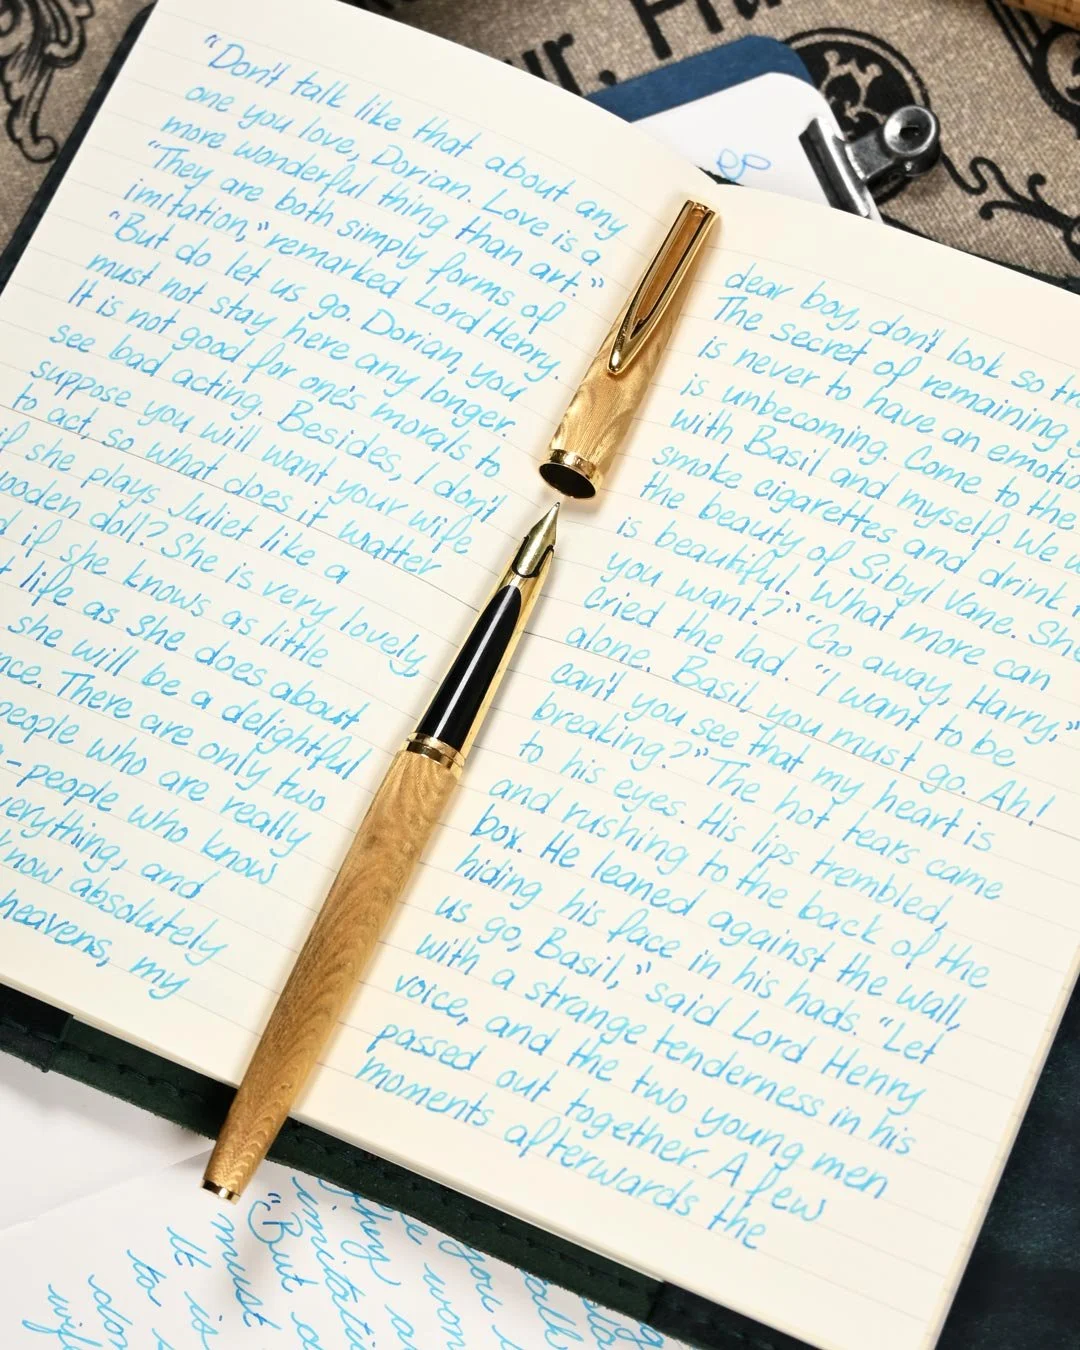 "Don't talk like that about any
one you love, Dorian. Love is a
more wonderful thing than art."
"They are both simply forms of
imitation," remarked Lord Henry.
"But do let us go. Dorian, you
must not stay here any longer.
It is not good for one's morals to
see bad acting. Besides, I don't
suppose you will want your wife
to act, so what does it matter
if she plays Juliet like a
wooden doll? She is very lovely,
if she knows as little
life as she does about
she will be a delightful
There are only two
people who are really
-people who know
and
know absolutely
heavens, my
dear boy, don't look so
The secret of remaining
is never to have an
is unbecoming. Come to the
with Basil and myself. We
smoke cigarettes and drink
the beauty of Sibyl Vane. She
is beautiful. What more can
you want?" "Go away, Harry,"
cried the lad. "I want to be
alone. Basil, you must go. Ah!
can't you see that my heart is
breaking?" The hot tears came
to his eyes. His lips trembled,
and rushing to the back of the
box. He leaned against the wall,
hiding his face in his hads. "Let
us go, Basil," said Lord Henry
with a strange tenderness in his
voice, and the two young men
passed out together. A few
moments afterwards the
"But
must
It is
to